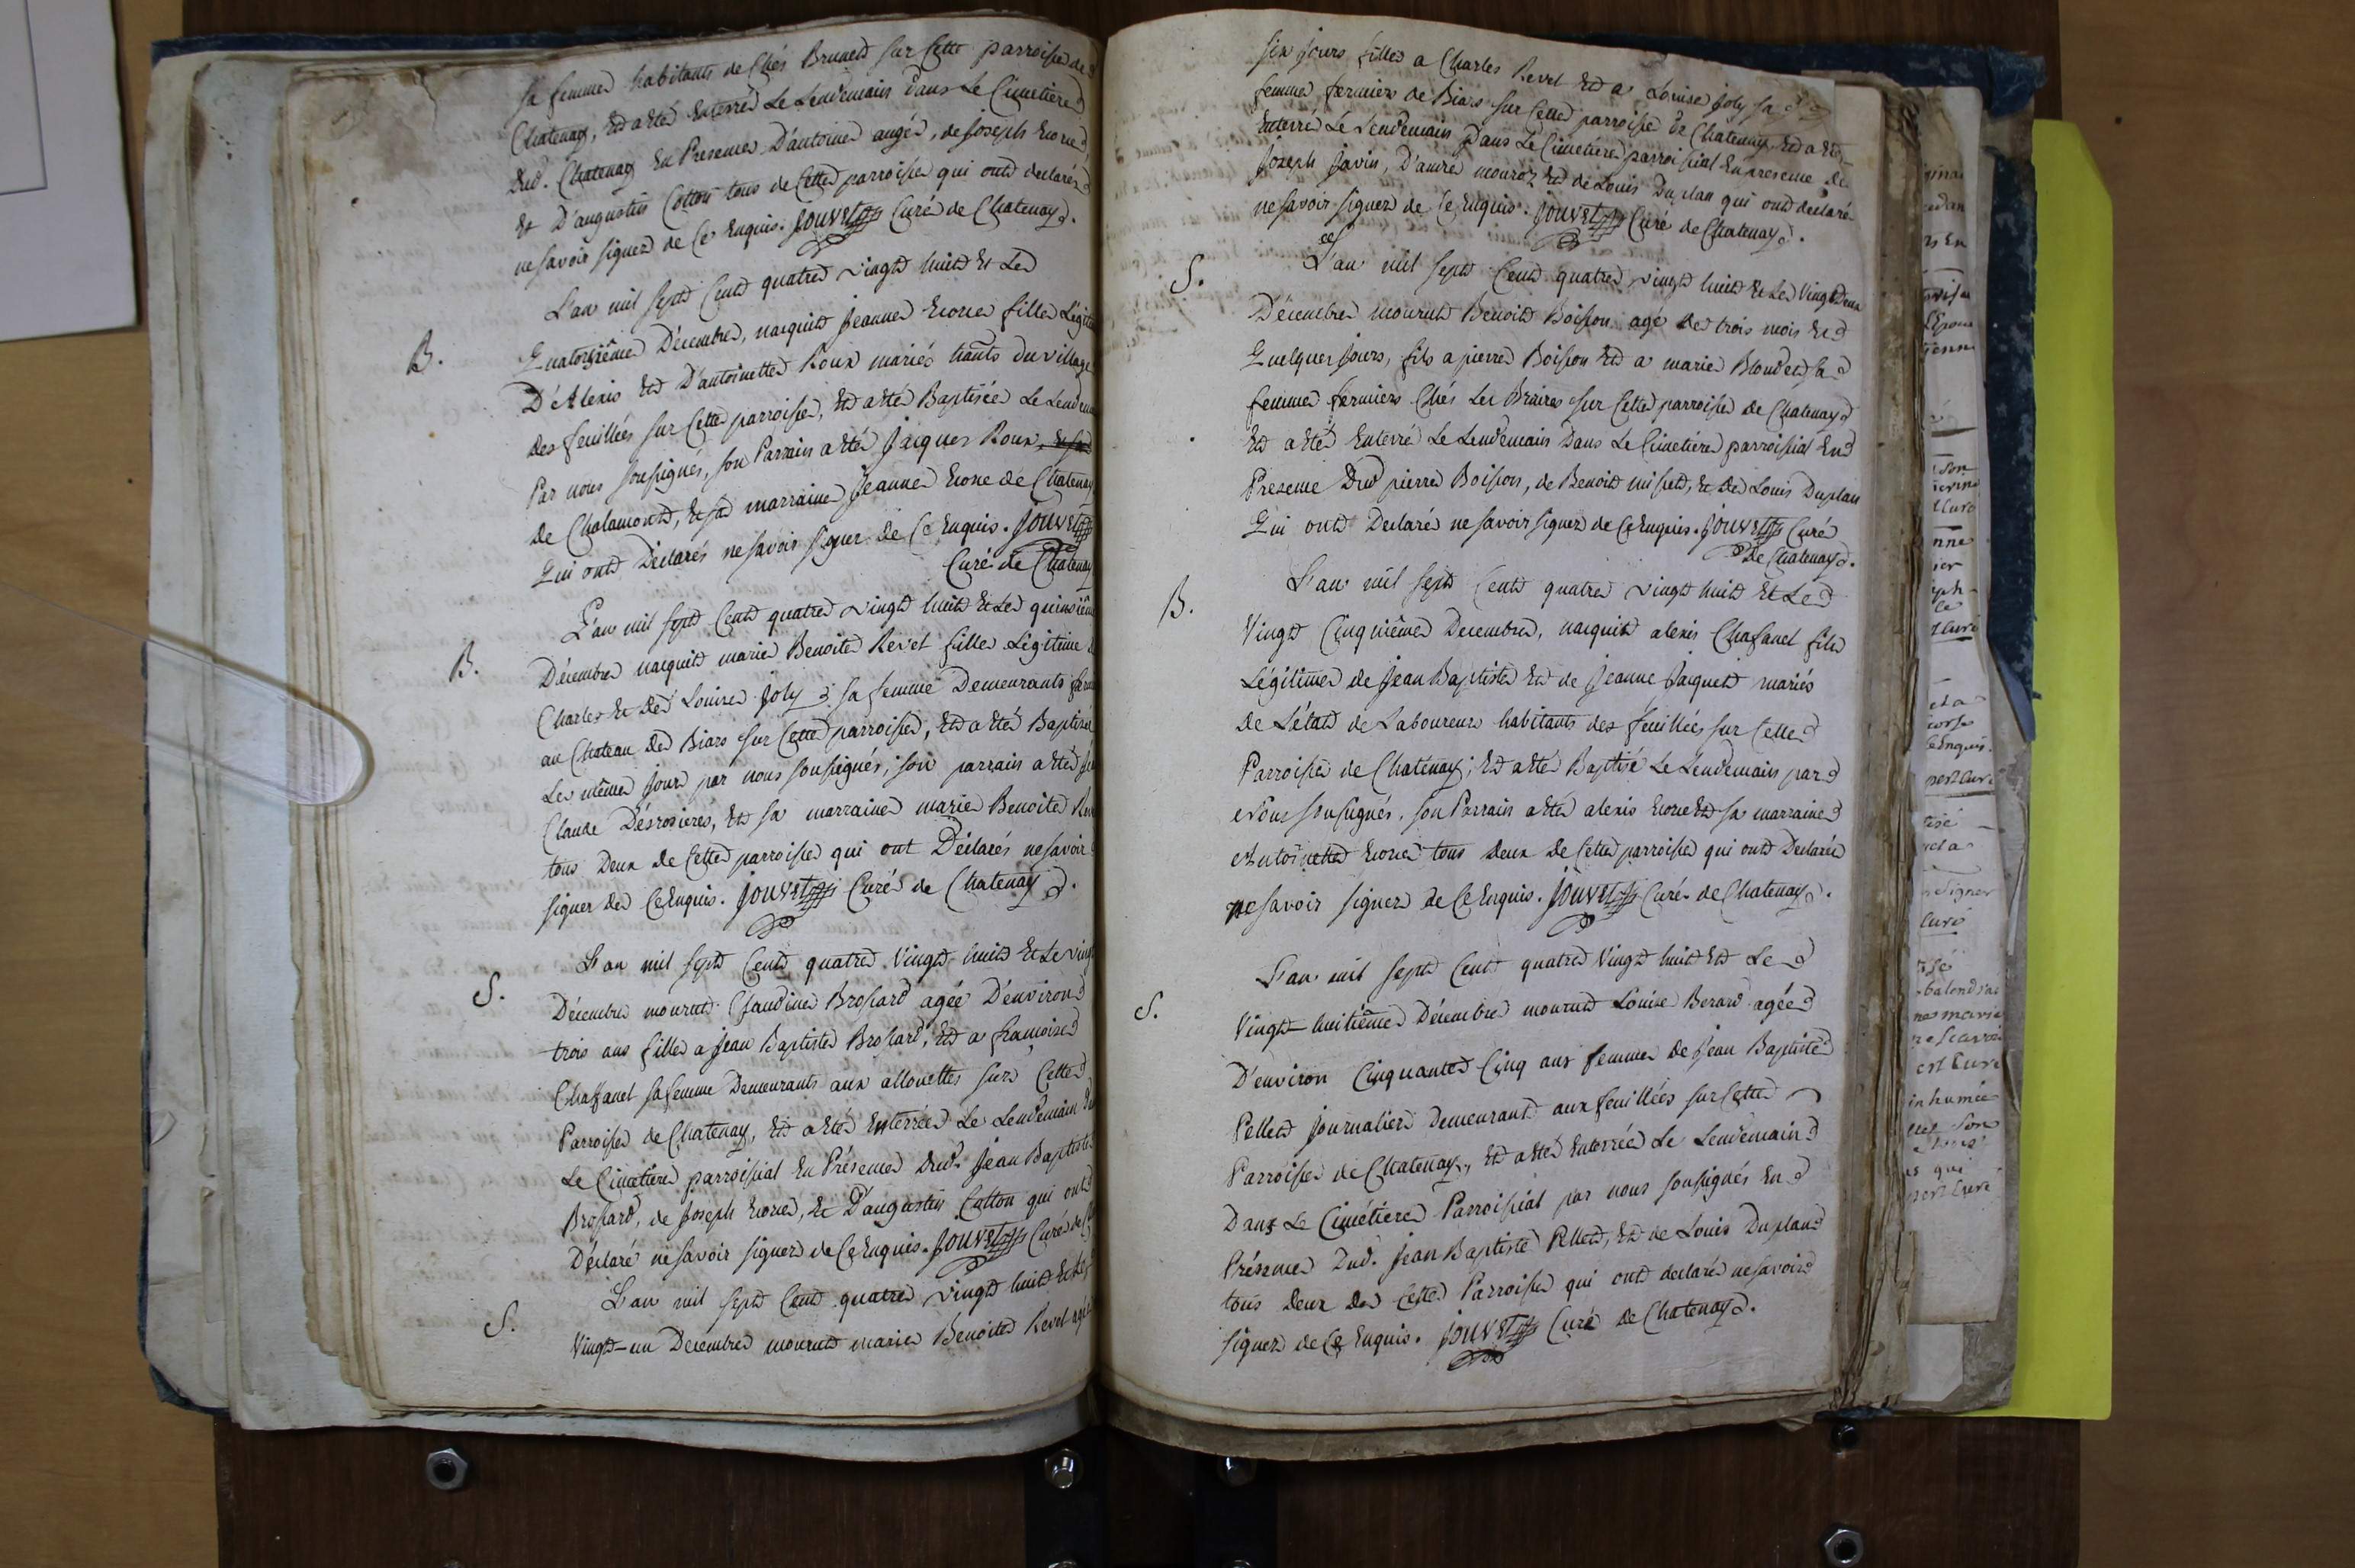 sa femme habitants de Chés Brunet sur Cette parroisse de
Chatenay, Et a été Enterré Le Lendemain dans Le Cimetiere
dud. Chatenay En Presence D'antoine augér, de Joseph
Et D'augustin Cotton tous de Cette parroisse qui ont declarés
ne savoir signer de Ce Enquis. Jouvet Curé de Chatenay.
L'an mil sept Cent quatre vingt huit Et Le
B.
Quatorzième Décembre, naquit Jeanne fille Légit
D'Alexis Et D'antoinette Roux mariés hants du village
des feuillées sur Cette parroisse, Et a été Baptisée Le Lendem
Par nous soussignés, son Parrain a été Jacques Roux
de Chalamont, Et sa marraine Jeanne de Chatenay
Qui ont Déclarés ne savoir signer de Ce Enquis. Jouvet
Curé de Chatenay
L'an mil sept Cent quatre vingt huit Et Le quinzième
B.
Décembre naquit marie Benoite Revel fille Légitime
Charles Et De Louise Joly sa femme Demeurants
au Chateau De Biars sur Cette parroisse, Et a été Baptisé
Le même Jour par nous soussignés, son parrain a été
Claude Désrosieres, Et sa marraine marie Benoite
tous Deux de Cette parroisse qui ont Déclarés ne savoir
signer De Ce Enquis. Jouvet Curé de Chatenay.
L'an mil sept Cent quatre Vingt huit Et Le vingt
S.
Décembre mourut Claudine Brossard agée D'environ
trois ans fille a Jean Baptiste Brossard, Et a francoise
Chafanel sa femme Demeurants aux allouettes sur Cette
Parroisse de Chatenay, Et a été Enterrée Le Lendemain
Le Cimetiere parroissial En Présence Dud. Jean Baptiste
Brossard, de Joseph, Et D'augustin Cotton qui ont
Déclaré ne savoir signer de Ce Enquis. Jouvet Curé de
L'an mil sept Cent quatre vingt huit Et Le
S.
Vingt-un Decembre mourut marie Benoite Revel agée
six Jours fille a Charles Revel Et a Louise Joly sa
femme fermiers de Biars sur Cette parroisse de Chatenay, Et a été
Enterré Le Lendemain Dans Le Cimetiere parroissial En presence de
Joseph Javin, D'andré Et de Louis Duplan qui ont declaré
ne savoir signer de Ce Enquis. Jouvet Curé de Chatenay.
S.
L'an mil sept Cent quatre vingt huit Et Le Vingt Deux
Décembre mourut Benoit Boisson agé De trois mois Et
Quelques Jours, fils a pierre Boisson Et a marie Blondet sa
femme fermiers Chés Les Braires sur Cette parroisse de Chatenay
Et a été Enterré Le Lendemain Dans Le Cimetiere parroissial En
Presence Dud pierre Boisson, de Benoit, Et De Louis Duplan
Qui ont Declarés ne savoir signer de Ce Enquis. Jouvet Curé
De Chatenay.
L'an mil sept Cent quatre vingt huit Et Le
B.
Vingt Cinquième Decembre, naquit alexis Chafanel fils
Légitime de Jean Baptiste Et de Jeanne Jacquet mariés
De L'état de Laboureurs habitants des feuillées sur Cette
Parroisse de Chatenay; Et a été Baptisé Le Lendemain par
Nous soussignés. son Parrain a été alexis Et sa marraine
Antoinette tous Deux De Cette parroisse qui ont Declarés
ne savoir signer de Ce Enquis. Jouvet Curé de Chatenay.
L'an mil sept Cent quatre Vingt huit Et Le
S.
Vingt-huitième Décembre mourut Louise Berard agée
D'environ Cinquante Cinq ans femme de Jean Baptiste
Pellet Journalier Demeurant aux feuillées sur Cette
Parroisse de Chatenay, Et a été Enterrée Le Lendemain
Dans Le Cimétiere Parroissial par nous soussignés En
Présence Dud. Jean Baptiste Pellet, Et de Louis Duplan
tous Deux De Cette Parroisse qui ont declarés ne savoir
signer de Ce Enquis. Jouvet Curé de Chatenay.